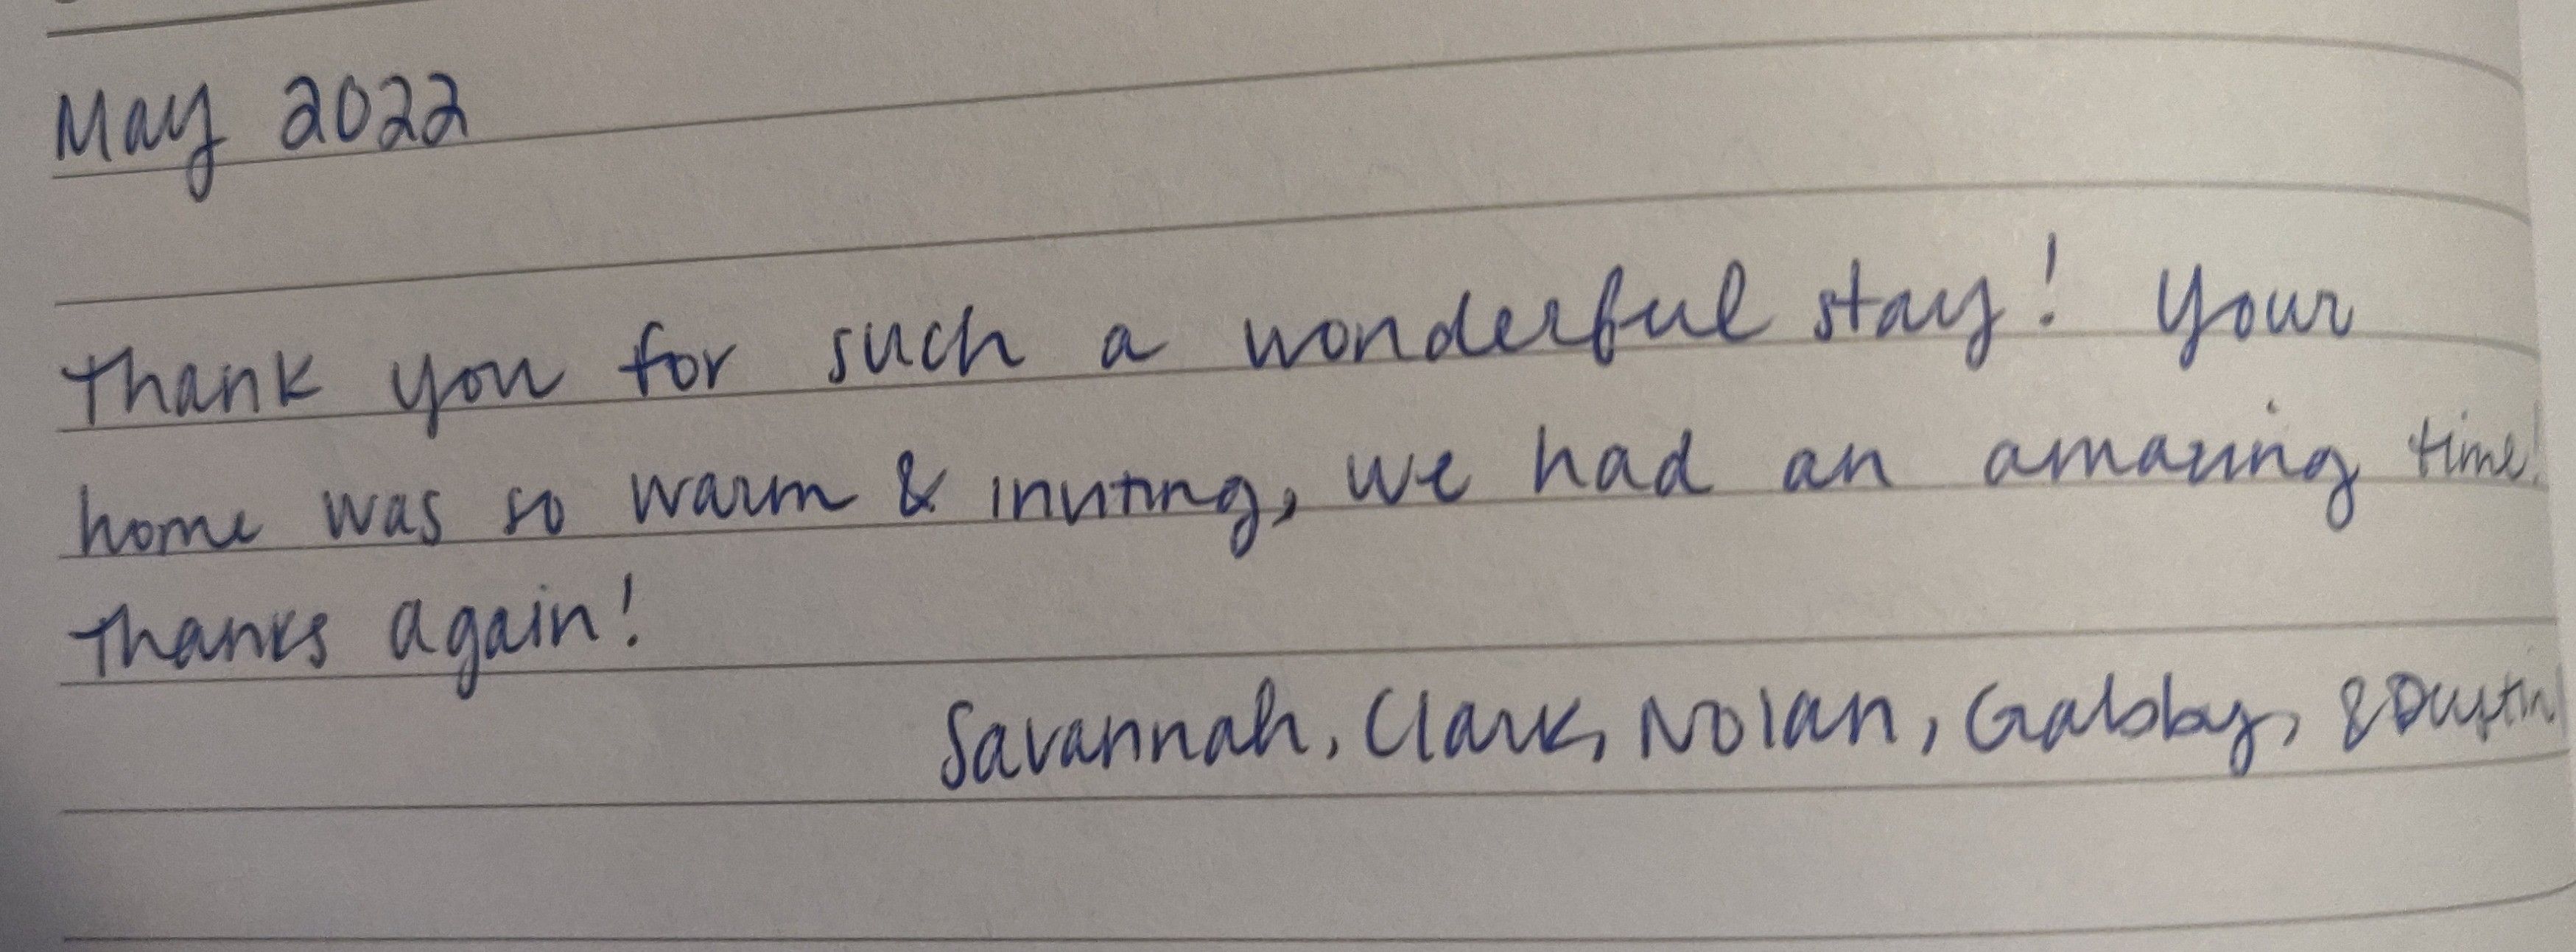 May 2022
Thank you for such a wonderful stay! Your
home was so warm & inviting, we had an amazing time!
Thanks again!
Savannah, Clark, Nolan, Gabby, & Dustin